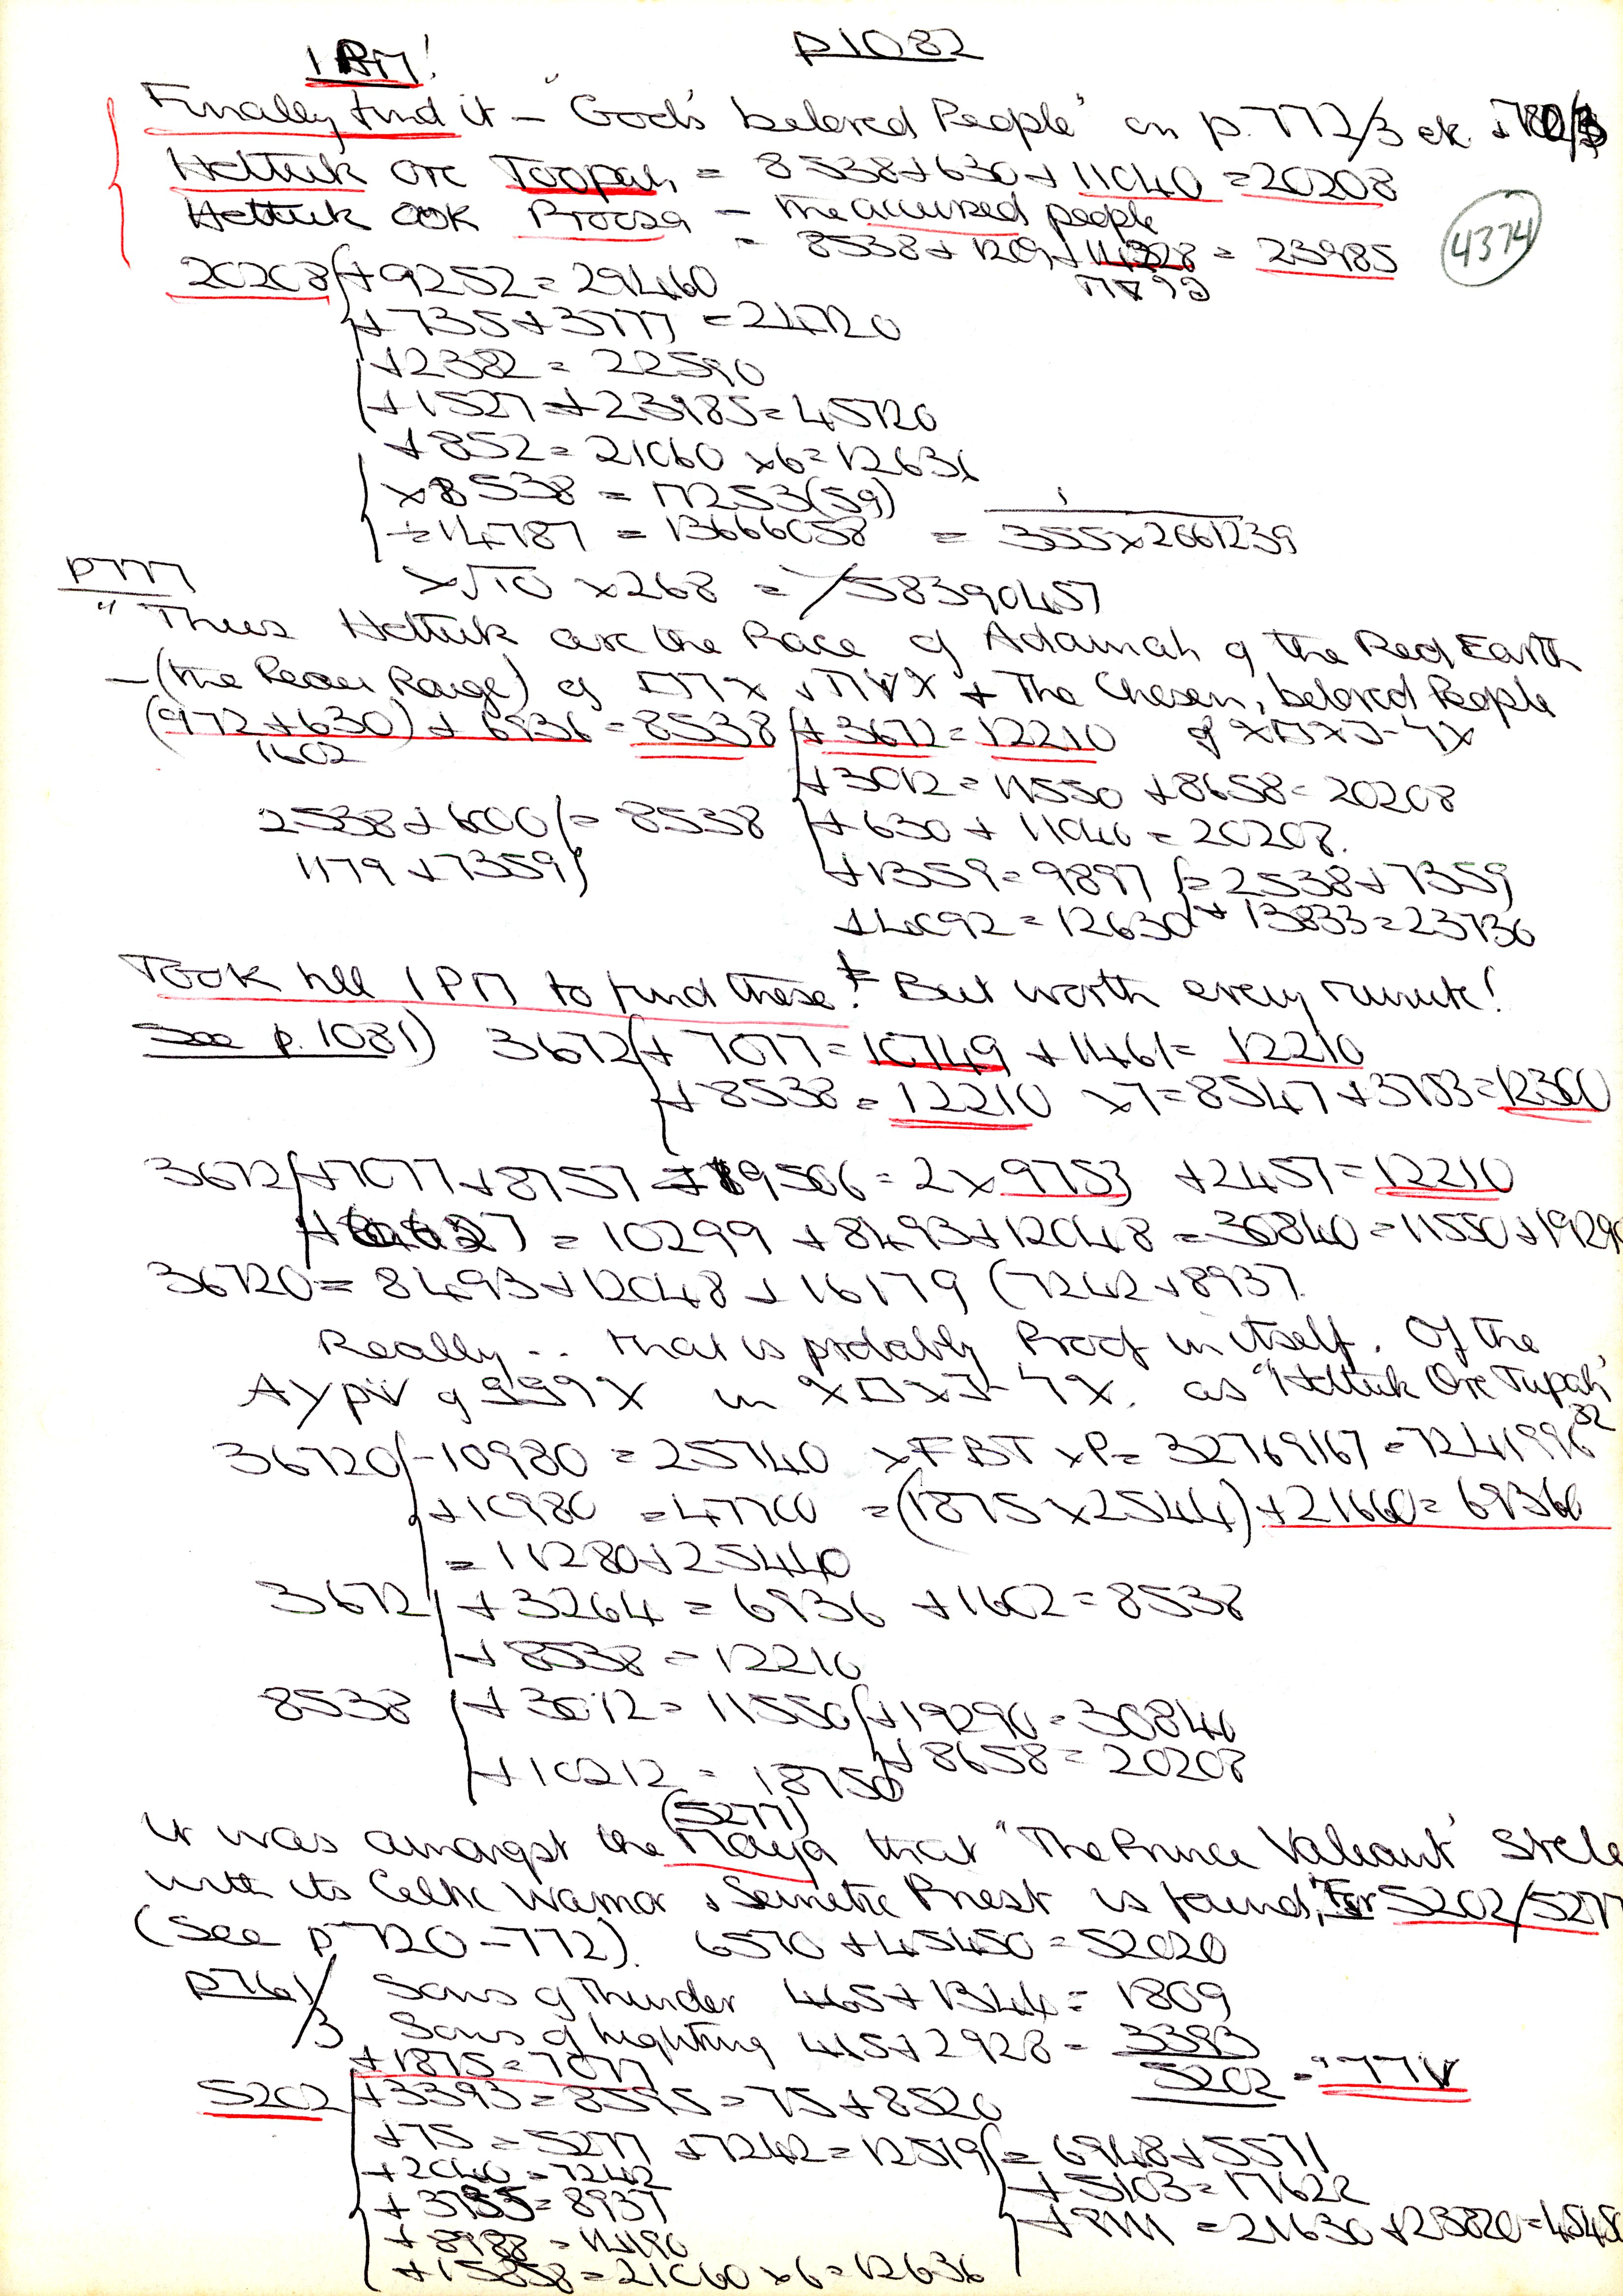 p1082
1 PM!
Finally find it - "God's beloved People" on p. 772/3 etc.
Hettuk Orc Toopah = 8538+630+11040 = 20208
Hettuk OOK Proosa - The accursed people
= 8538+1209+ = 23985
4374
20208 +9252 = 29460
+735+3777 = 24720
+2382 = 22590
+1527+23985 = 45720
+852 = 21060 x6 = 12636
x8538 = 17253(59)
÷14787 = 13666058 = 1/355x2661239
x√10 x268 = 1/58390457
p777
"Thus Hettuk are the Race of Adamah of the Red Earth
- (the Range) of + The Chosen, beloved People
(972+630)+6936 = 8538 +3672 = 12210 of
1602
+3012 = 11550 +8658 = 20208
2538+6000 = 8538 +630+11040 = 20208.
1179+7359 +1359 = 9897 = 2538+7359
+4092 = 12630 +13833 = 23730
Took till 1 PM to find these! But worth every minute!
See p.1081) 3672 +7077 = 10749 +1461 = 12210
+8538 = 12210 x7 = 8547 +3783 = 12360
3672 +7077+8757 = 19506 = 2x9753 +2457 = 12210
+6627 = 10299 +8493+12048 = 30840 = 11550+19290
36720 = 8493+12048+16179 (7242+8937
Really.. that is probably Proof in itself. Of the
in as "Hettuk Orc Tupah"
36720 -10980 = 25740 xFBT xP = 32769167 = 7241996³²
+10980 = 47700 = (1875x2544)+21660 = 69360
= 11280+25440
3672 +3264 = 6936 +1602 = 8538
+8538 = 12210
8538 +3012 = 11550 +19290 = 30840
+8658 = 20208
+10212 = 18750
(5277)
It was amongst the Maya that "The Prince Valiant" Stele
with its Celtic Warrior & Semetic Priest is found, For 5202/5277
(See p 720-772). 6570+45450 = 52020
p761/3 Sons of Thunder 465+1344 = 1809
Sons of lighting 465+2928 = 3393
+1875 = 7077
5202 = 77V
5202 +3393 = 8595 = 75+8520
+75 = 5277 +7242 = 12519 = 6948+5571
+2040 = 7242 +5103 = 17622
+3735 = 8937
+9111 = 21630 +23820 = 45450
+8988 = 14190
+15858 = 21060 x6 = 12636